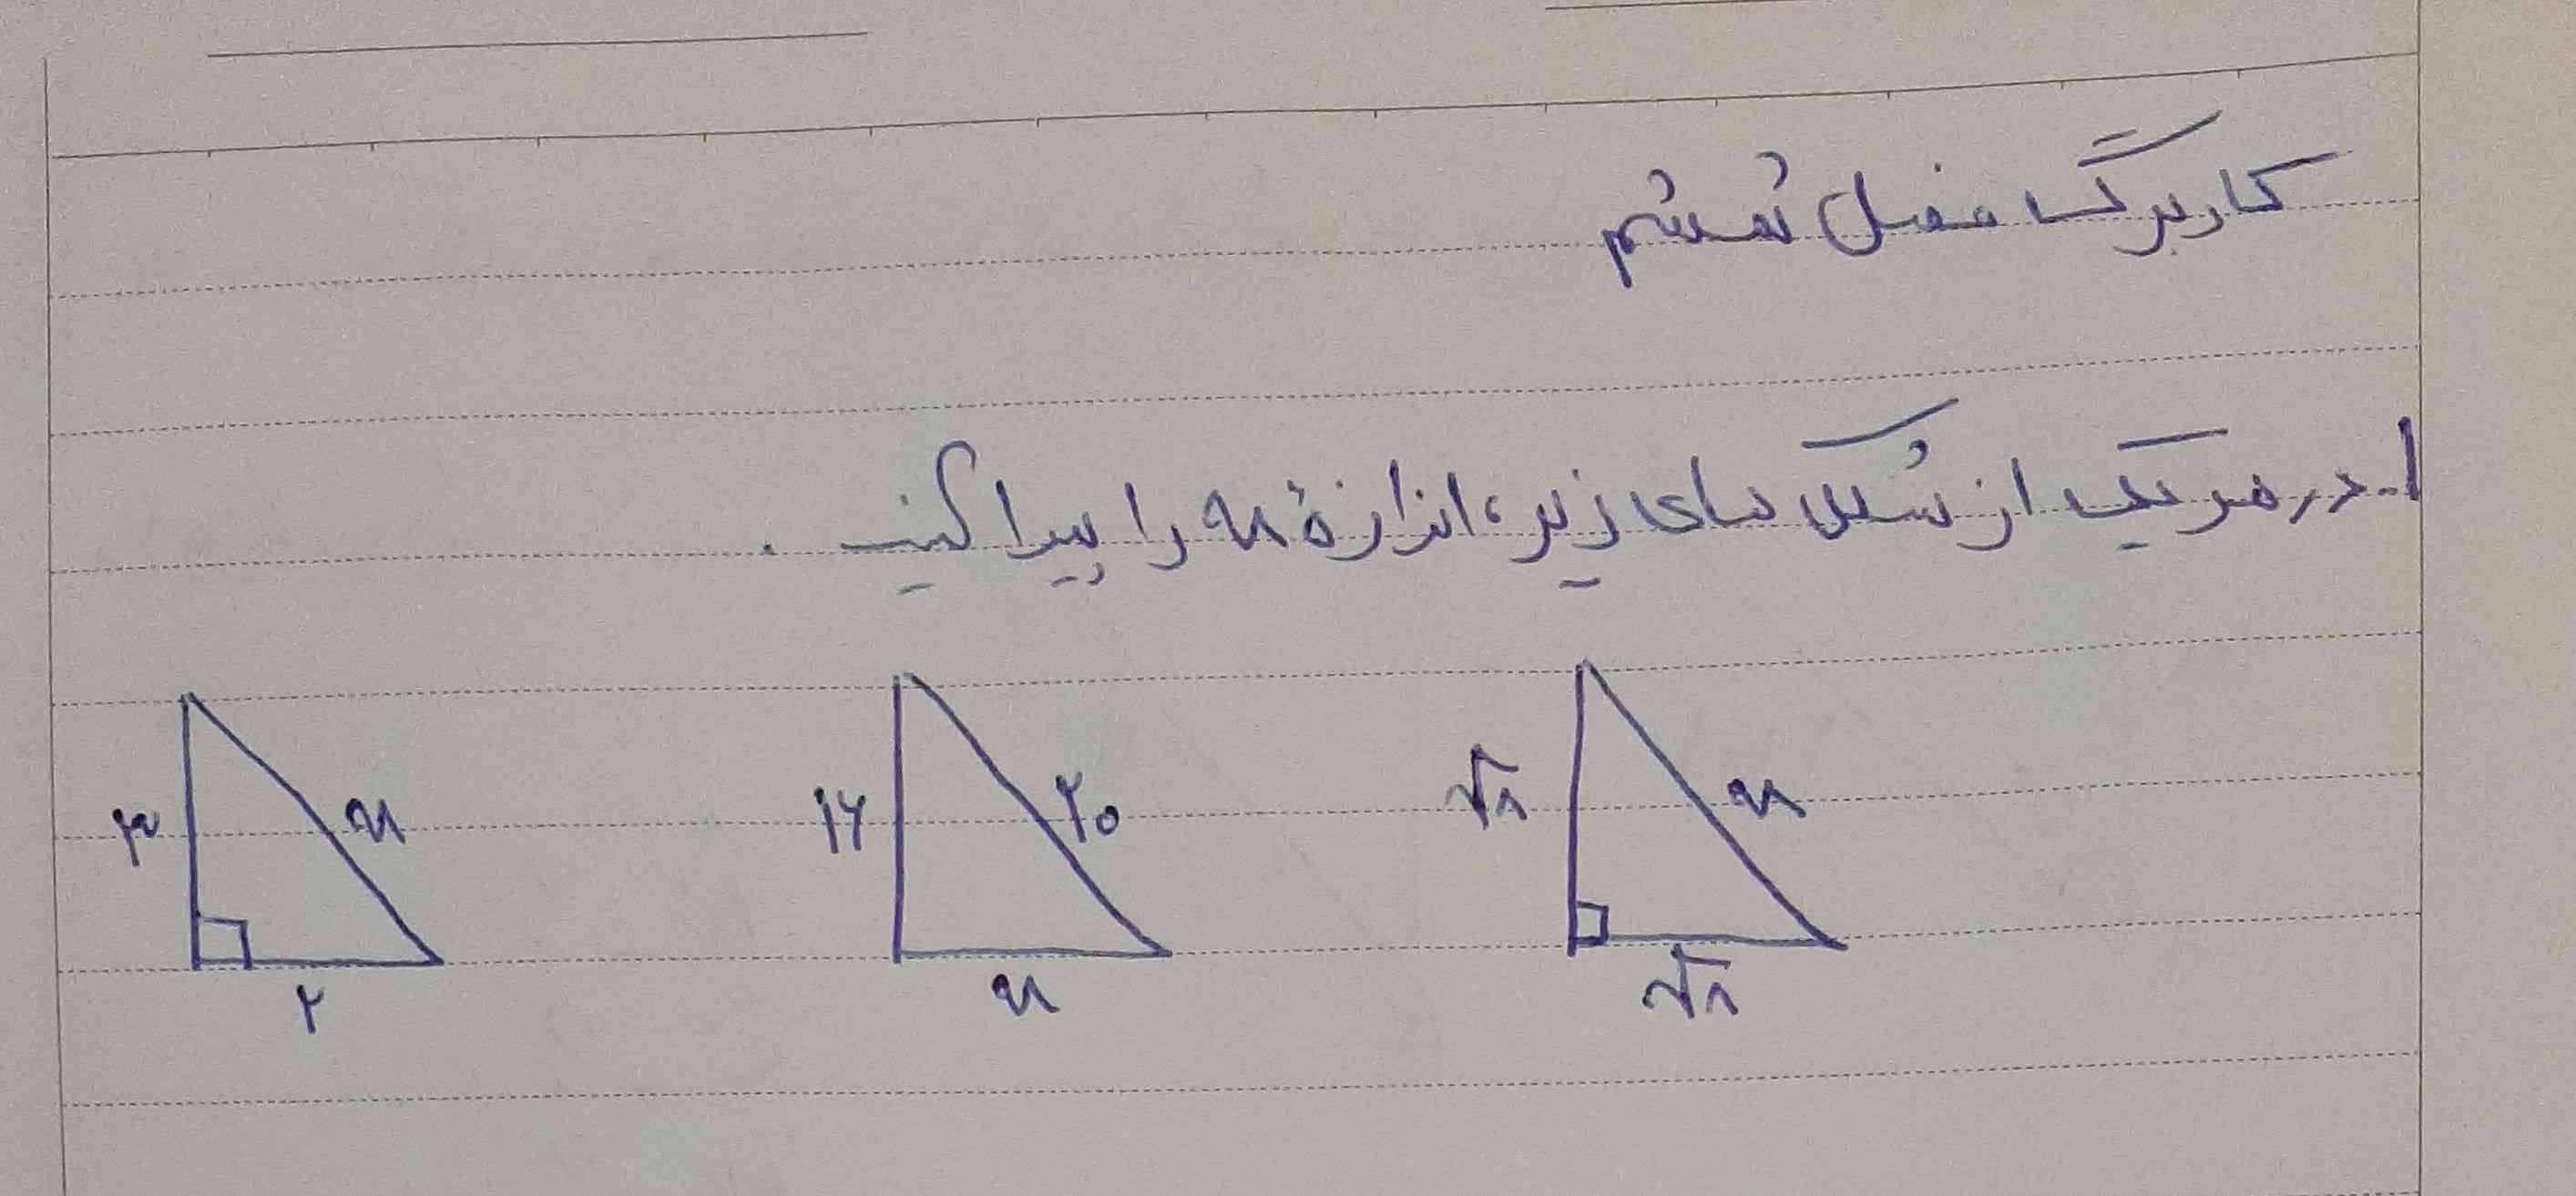 کاربرگ فصل ششم
۱- در هر یک از شکل های زیر، اندازهٔ x را پیدا کنید.
√۸ x √۸
۱۶ ۲۰ x
۳ x ۲